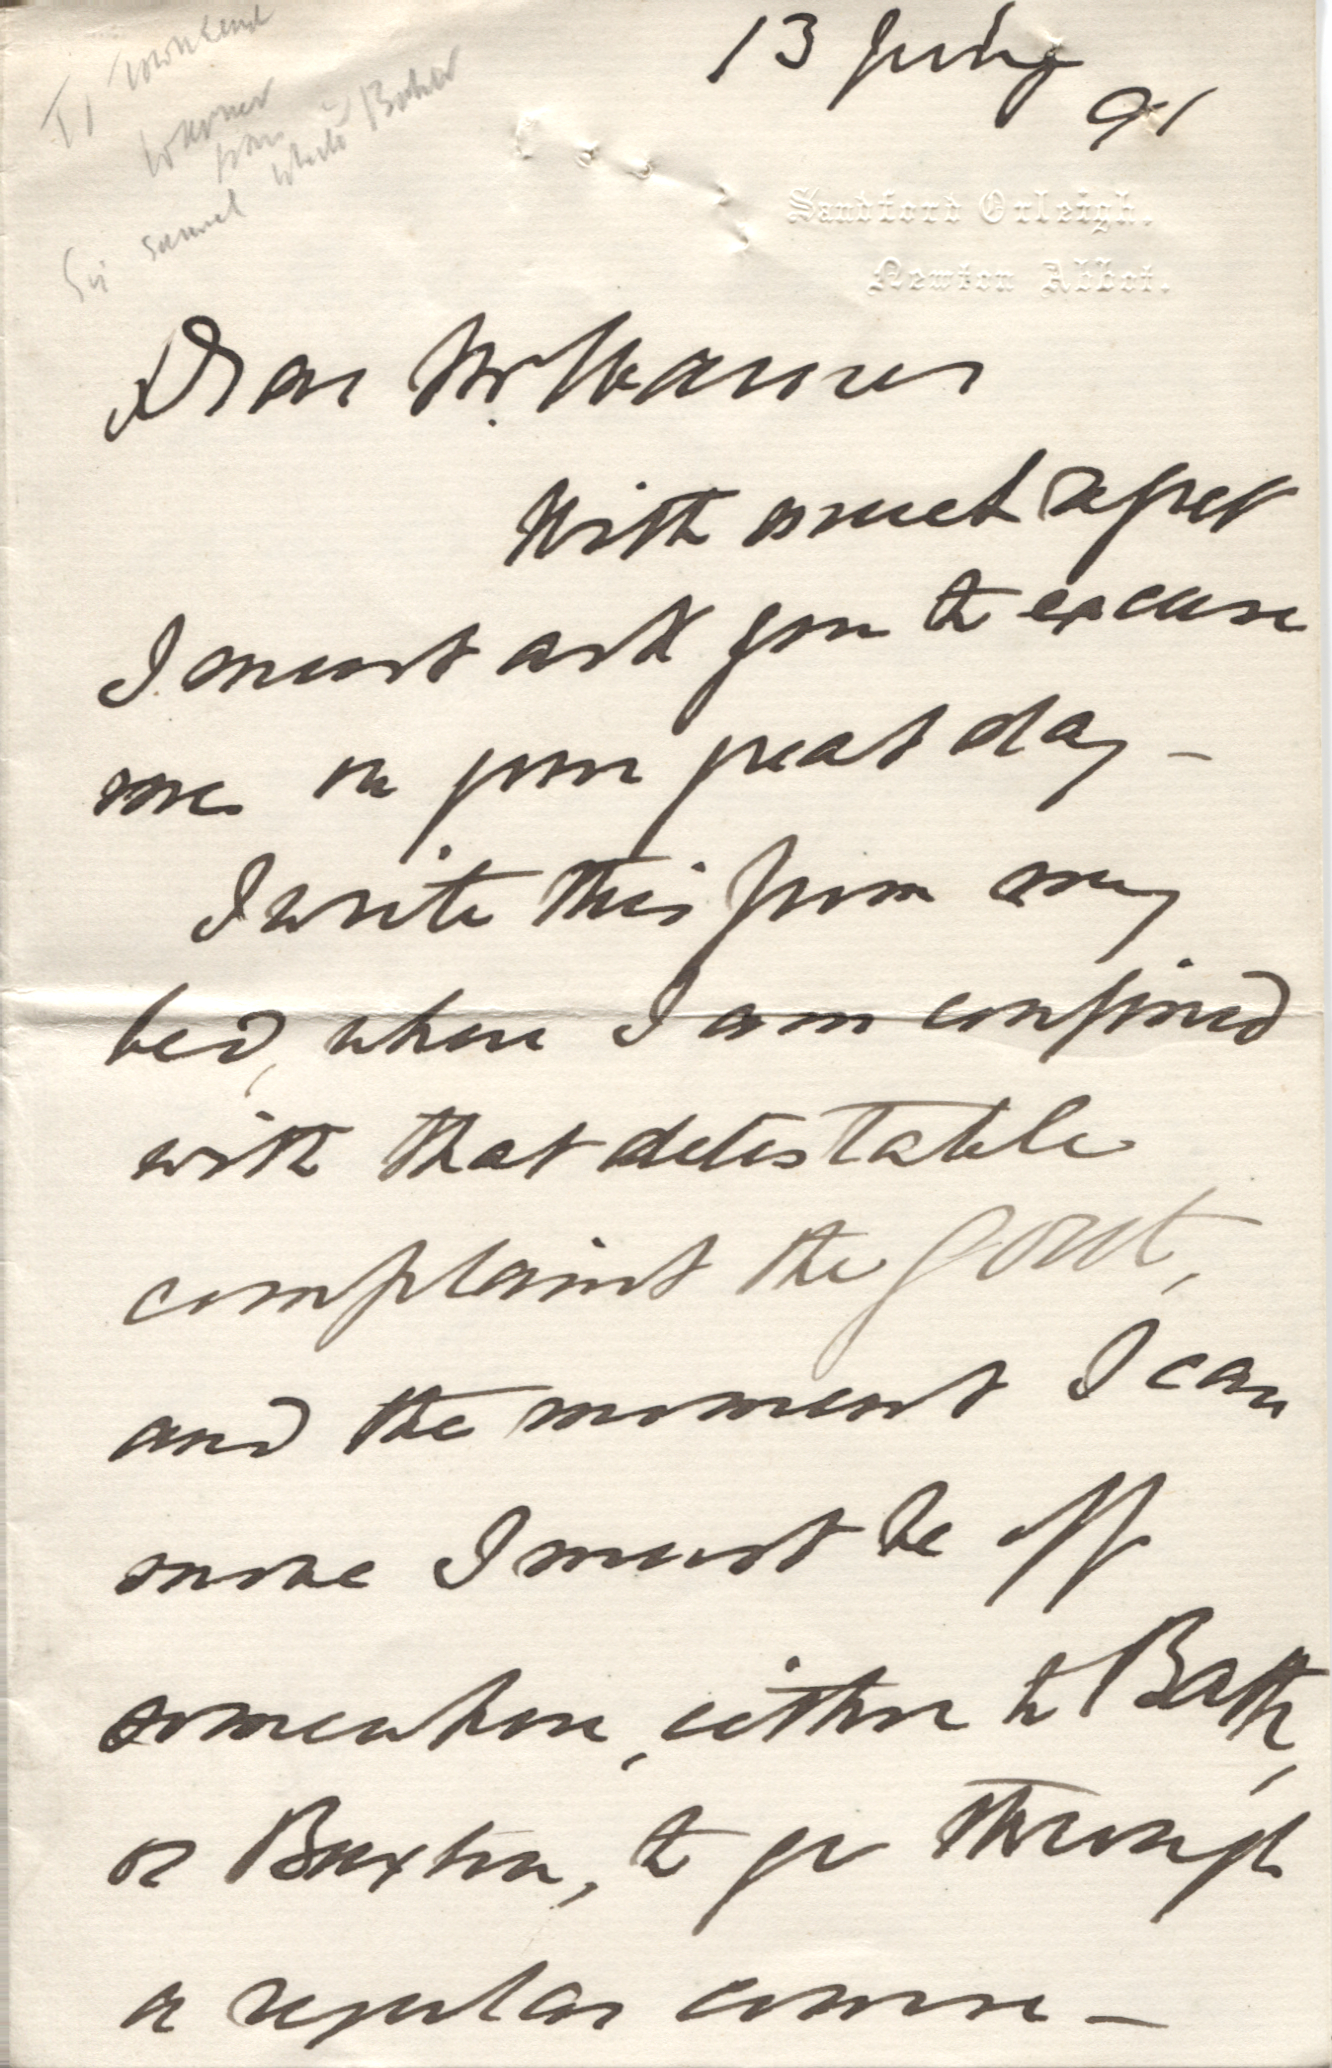 To Townsend
Warner
from
Sir Samuel White Baker
13 July
91
Sandford Orleigh.
Newton Abbot.
Dear Mr. Warner
With much regret
I must ask you to excuse
me on your great day –
I write this from my
bed, where I am confined
with that detestable
complaint the gout,
and the moment I can
move I must be off
somewhere, either to Bath,
or Buxton, to go through
a regular course –